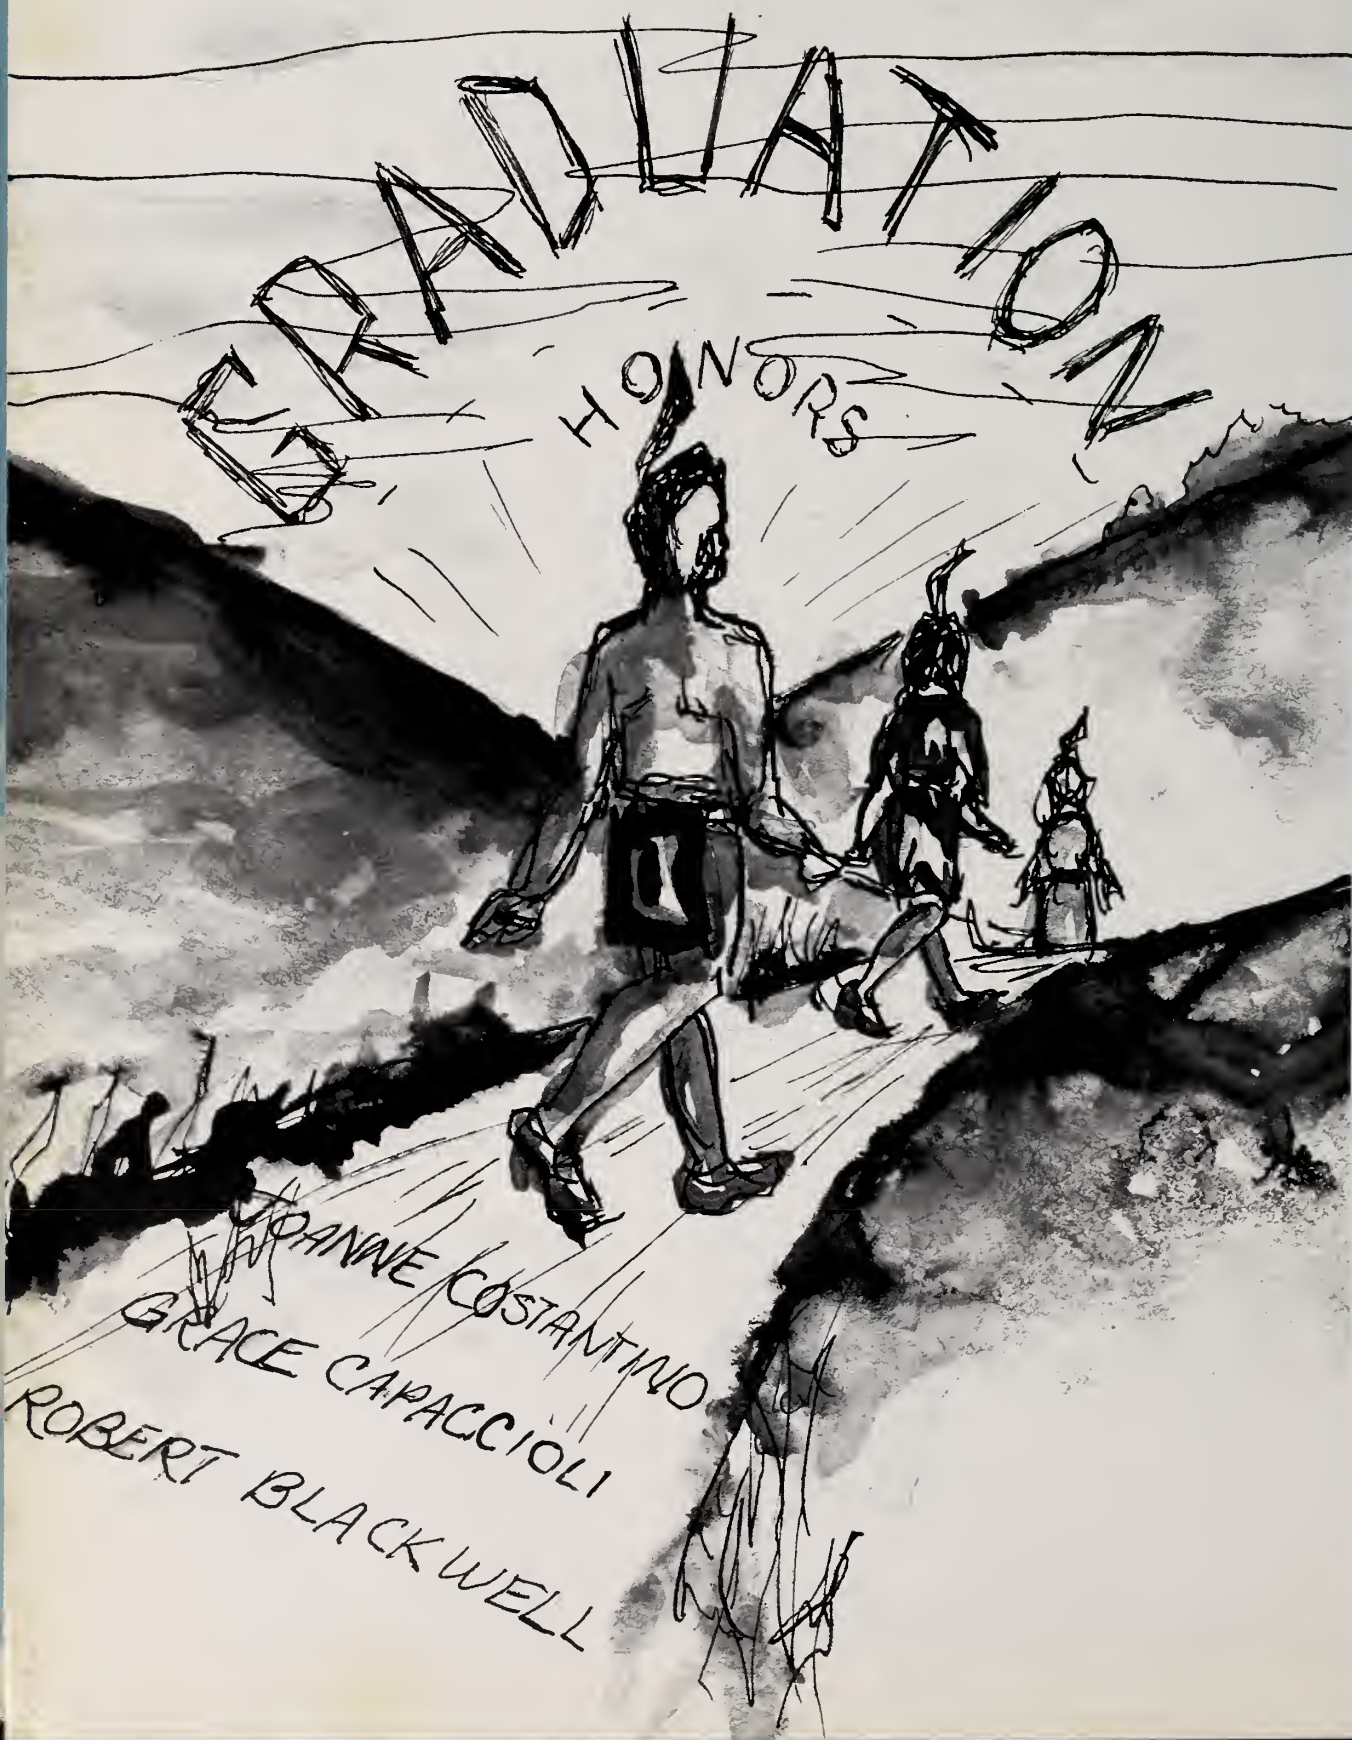 GRADUATION
HONORS
JOANNE COSTANTINO
GRACE CAPACCIOLI
ROBERT BLACKWELL